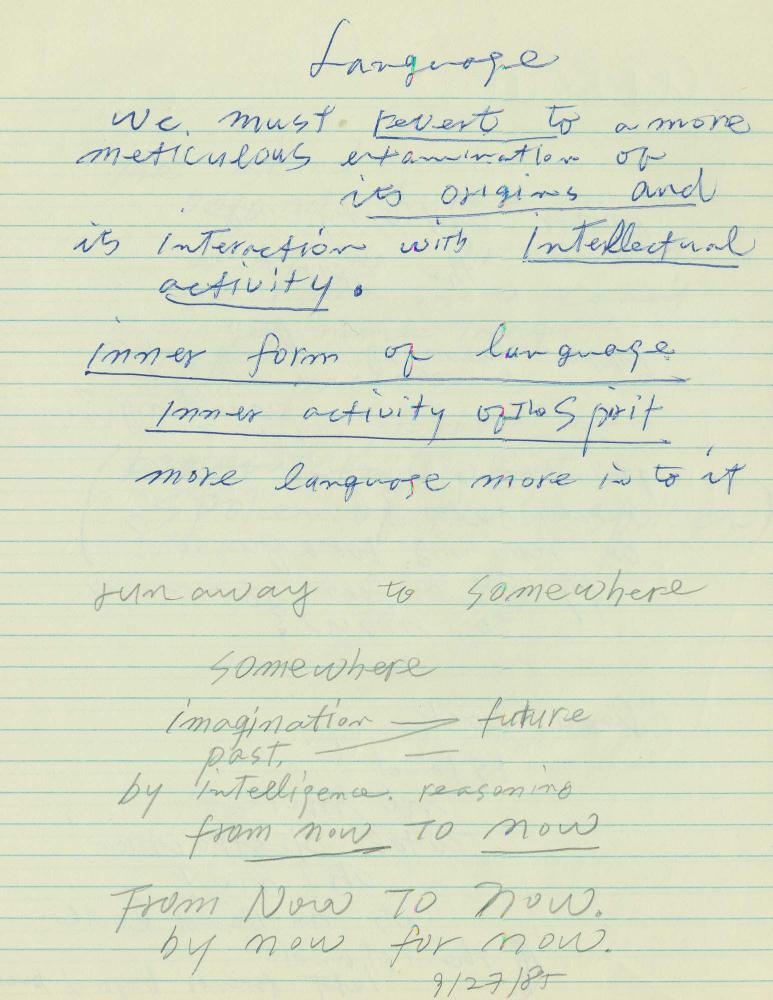 Language
We. must revert to a more
meticulous examination of
its origins and
its interaction with intellectual
activity.
inner form of language
Inner activity of The Spirit
more language more in to it
run away to somewhere
somewhere
imagination — future
past, — —
by intelligence. reasoning
from now TO now
From Now TO Now.
by now for now.
9/27/85